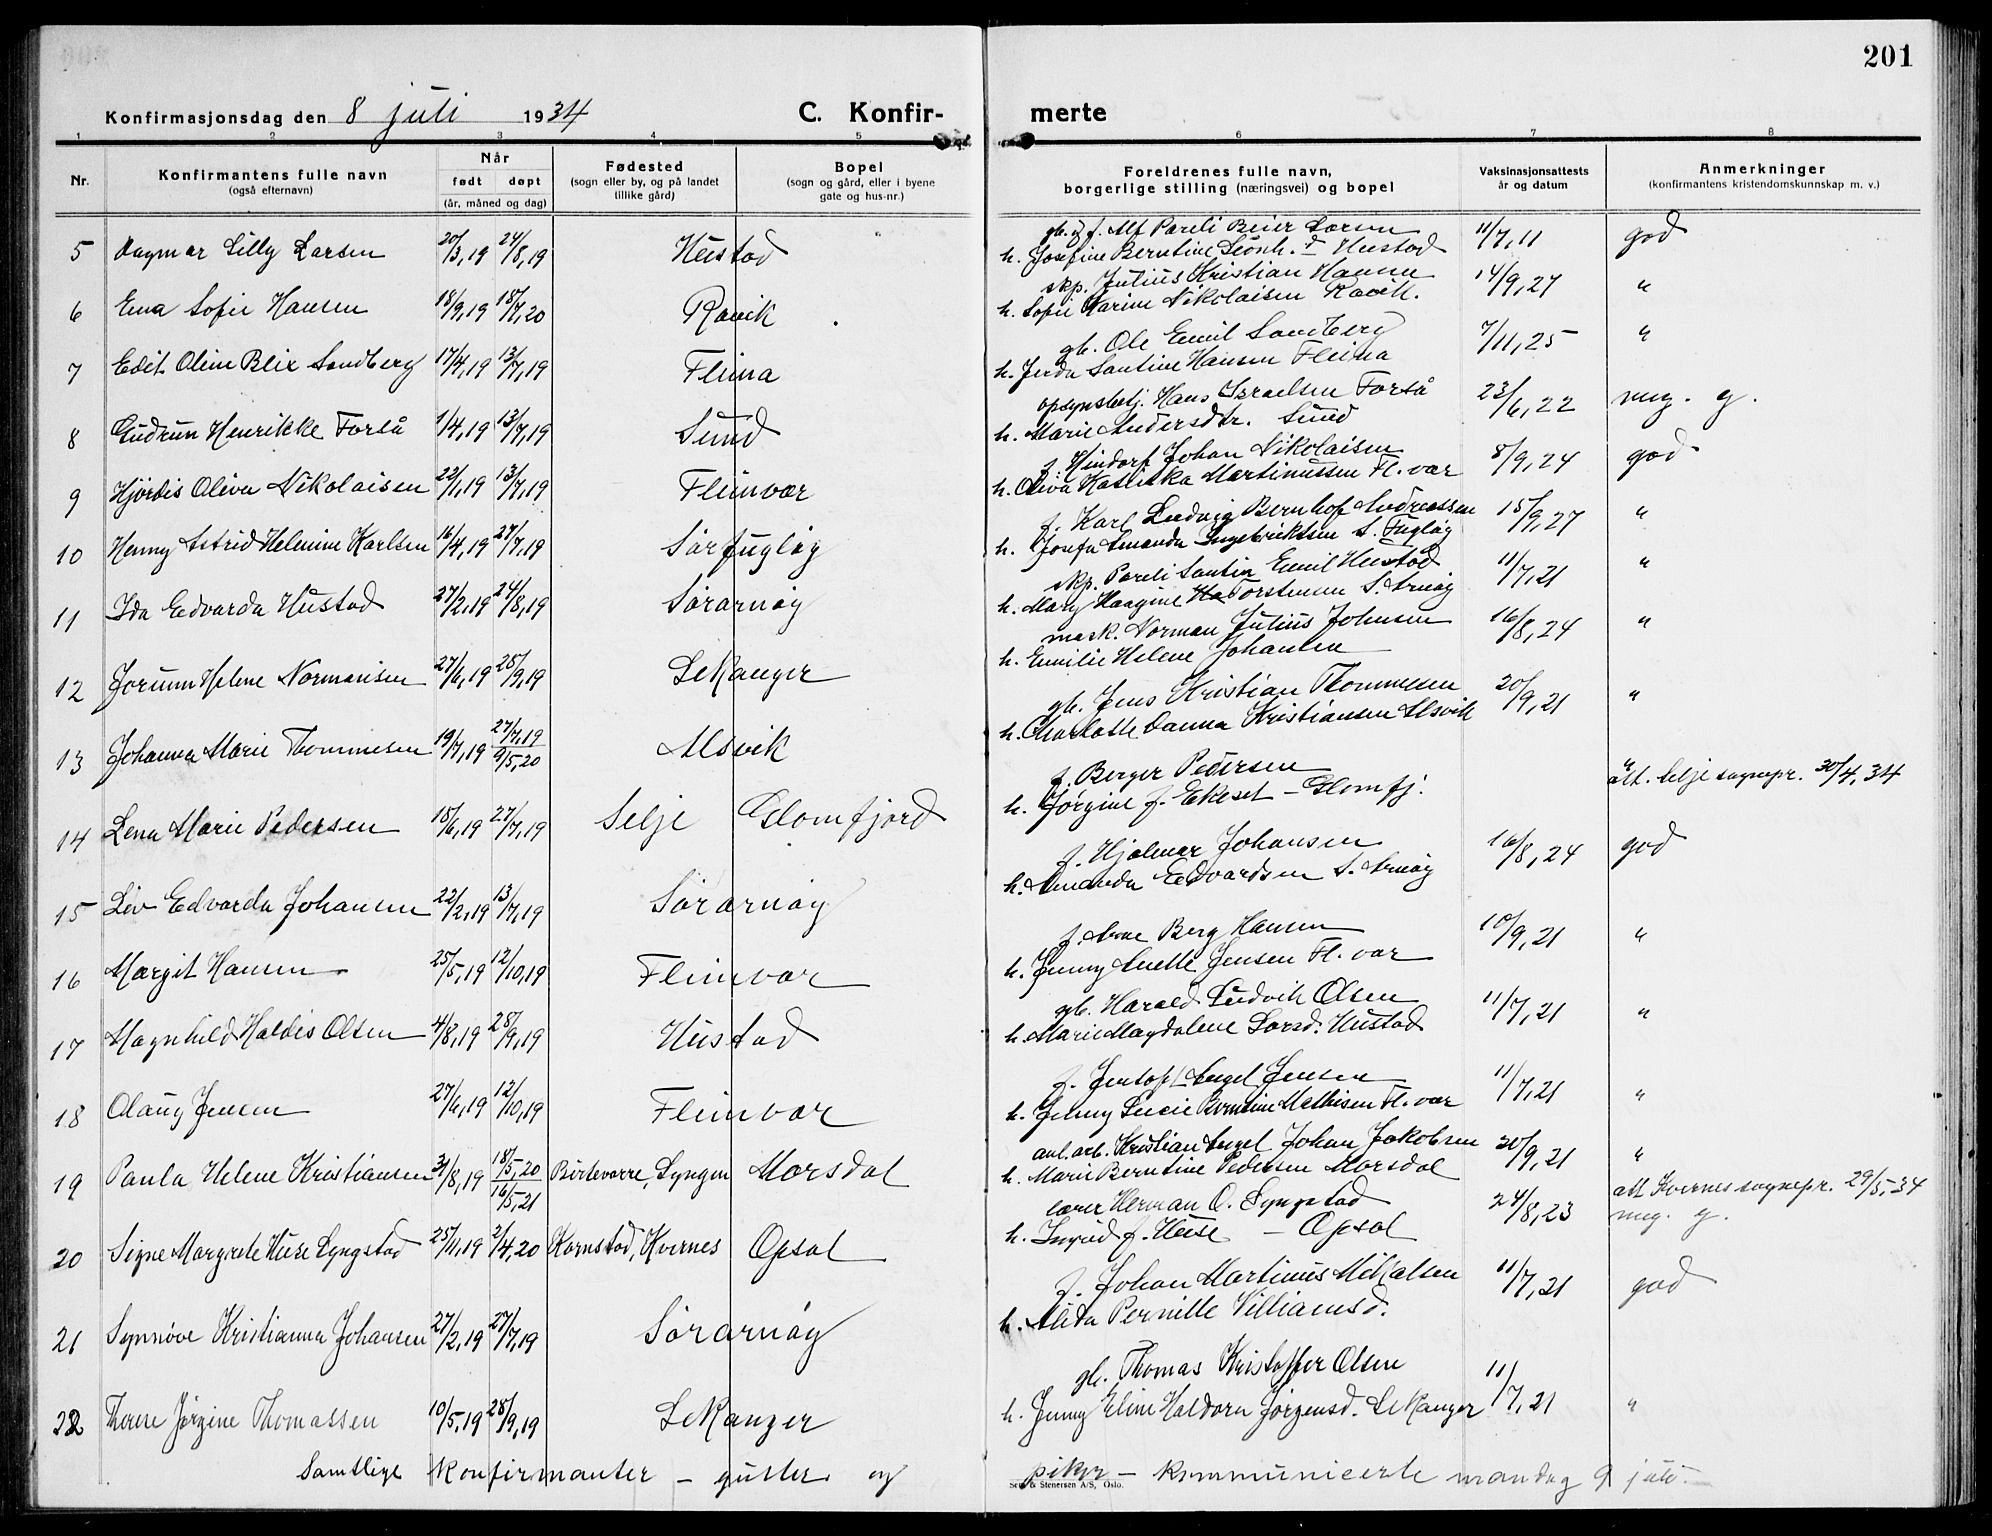 201
Konfirmasjonsdag den 8 juli 1934 C. Konfir-
merte
1 2 3 4 5 6 7 8
Nr.
Konfirmantens fulle navn
(også efternavn)
Når
født døpt
(år, måned og dag)
Fødested
(sogn eller by, og på landet
tillike gård)
Bopel
(sogn og gård, eller i byene
gate og hus-nr.)
Foreldrenes fulle navn,
borgerlige stilling (næringsvei) og bopel
Vaksinasjonsattests
år og datum
Anmerkninger
(konfirmantens kristendomskunnskap m. v.)
gb. Alf Pareli Beier Larsen
5 Dagmar Lilly Larsen 20/3,19 24/8,19 Hustad h. Josefine Berntine Hustad 11/7,11 god
skp. Julius Kristian Hansen
6 Erna Sofie Hansen 18/9,19 18/7,20 Råvik h. Sofie Karine Nikolaisen Råvik. 14/9,27 "
gb. Ole Emil Sandberg
7 Edit Oline Blix Sandberg 17/4,19 13/7,19 Fleina h. Jerda Santine Hansen Fleina 7/11,25 "
opsynsbetj. Hans Israelsen Forså
8 Gudrun Henrikke Forså 1/4,19 13/7,19 Sund h. Marie Andersdtr. Sund 23/6,22 meg. g.
f. Hindorf Johan Nikolaisen
9 Hjördis Oliva Nikolaisen 22/1,19 13/7,19 Fleinvær h. Oliva Martinussen Fl. vær 8/9,24 god
f. Karl Ludvig Bernhof Andreassen
10 Henny Astrid Helmine Karlsen 16/4,19 27/7,19 Sørfugløy h. Josefa Amanda Ingebriktsen S. Fugløy 15/9,27 "
skp. Pareli Santin Emil Hustad
11 Ida Edvarda Hustad 27/2,19 24/8,19 Sørarnøy h. Mary Haagine Torstensen S. Arnøy 11/7,21 "
mask. Norman Julius Johnsen
12 Jorunn Helene Normansen 27/6,19 28/9,19 Lekanger h. Emilie Helene Johansen 16/8,24 "
gb. Jens Kristian Thommesen
13 Johanna Marie Thommesen 19/7,19 27/7,19 9/5,20 Alsvik h. Charlotte Danna Kristiansen Alsvik 20/9,21 "
f. Berger Pedersen
14 Lena Marie Pedersen 18/6,19 27/7,19 Selje Glomfjord h. Jørgine f. Ekeset – Glomfj. " att. Selje sognepr. 30/4,34
f. Hjalmar Johansen
15 Liv Edvarda Johansen 22/2,19 13/7,19 Sørarnøy h. Amanda Edvardsen S. Arnøy 16/8,24 god
f. Arne Berg Hansen
16 Margit Hansen 25/5,19 12/10,19 Fleinvær h. Jenny Anette Jensen Fl. vær 10/9,21 "
gb. Harald Ludvik Olsen
17 Magnhild Haldis Olsen 4/8,19 28/9,19 Hustad h. Marie Magdalene Larsd. Hustad 11/7,21 "
f. Jentof Angel Jensen
18 Olaug Jensen 27/6,19 12/10,19 Fleinvær h. Jenny Lucie Berntine Mathisen Fl. vær 11/7,21 "
anl. arb. Kristian Angel Johan Jakobsen
19 Paula Helene Kristiansen 31/8,19 18/5,20 16/5,21 Birtevarre, Lyngen Mørsdal h. Marie Berntine Pedersen Mørsdal 20/9,21 "
lærer Herman O. Lyngstad
20 Signe Margrete Huse Lyngstad 25/11,19 2/4,20 Kornstad, Kvernes Opsal h. Ingrid f. Huse – Opsal 24/8,23 att Kvernes sognepr. 29/5,34 meg. g.
f. Johan Martinus Mikalsen
21 Synnøve Kristianna Johansen 27/2,19 27/7,19 Sørarnøy h. Alida Pernille Villiamsd. 11/7,21 god
gb. Thomas Kristoffer Olsen
22 Therese Jørgine Thomassen 10/5,19 28/9,19 Lekanger h. Jenny Eline Haldora Jørgensd. Lekanger 11/7,21 "
Samtlige konfirmanter – gutter og piker – kommuniserte mandag 9 juli.
Sem & Stenersen A/S, Oslo.